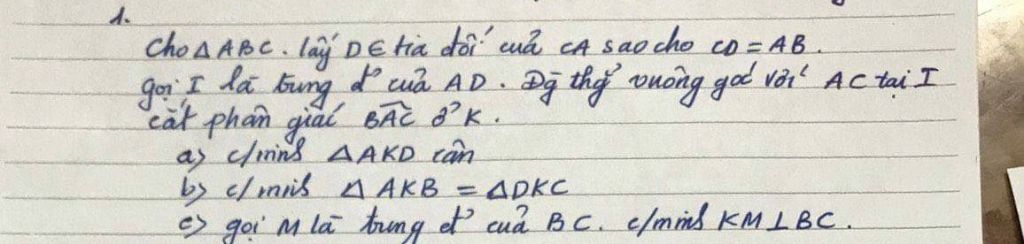 1.
Cho △ ABC. lấy D ∈ tia đối của CA sao cho CD = AB.
gọi I là trung đ' của AD. Đg thg̉ vuông góc với AC tại I
cắt phân giác BAC ở K.
a) c/minh △AKD cân
b) c/minh △ AKB = △DKC
c) gọi M là trung đ' của BC. c/minh KM⊥BC.